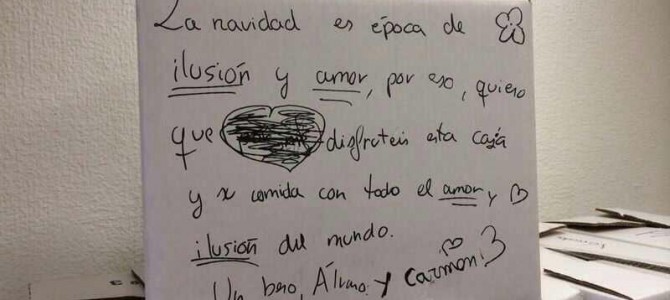 La navidad es época de
ilusión y amor, por eso, quiero
que disfruteis esta caja
y x comida con todo el amor y
ilusión del mundo.
Un beso, Álvaro y Carmen :3